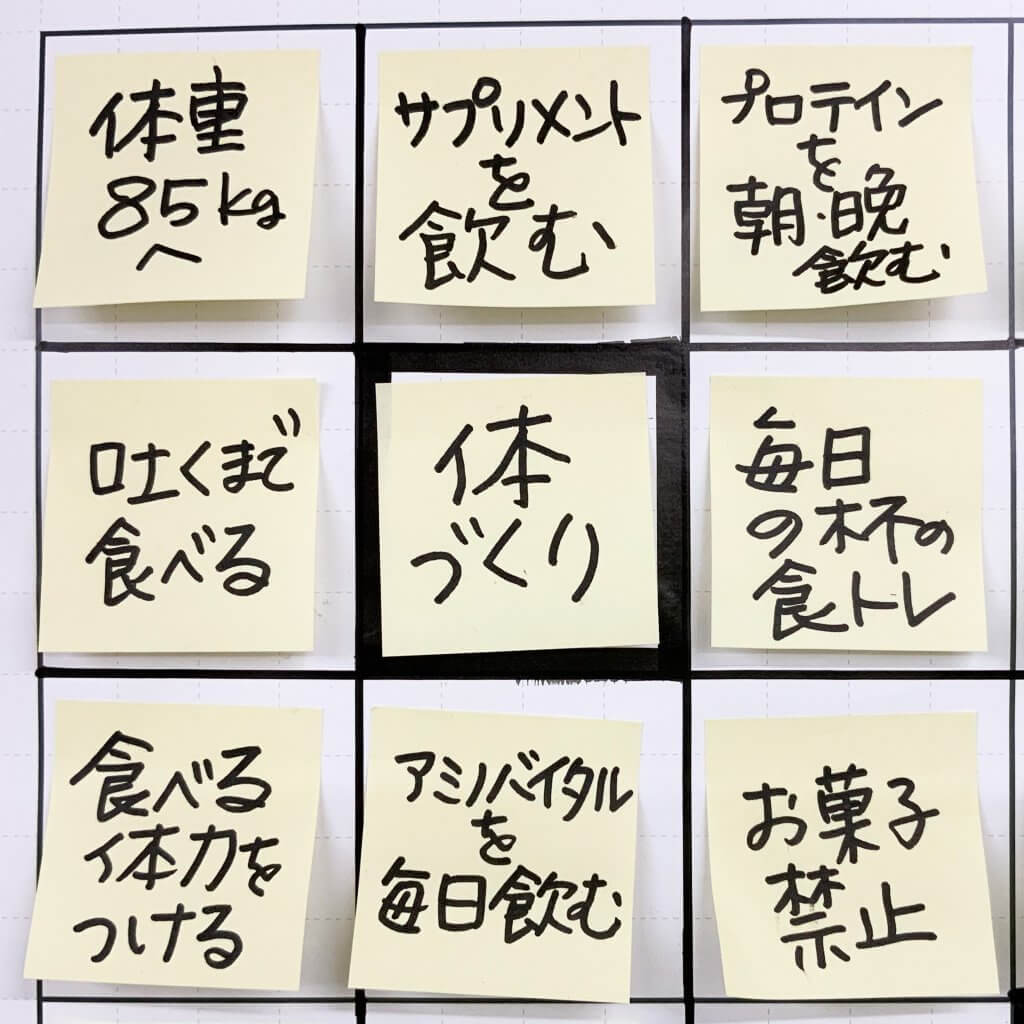 体重
85kg
へ
サプリメント
を
飲む
プロテイン
を
朝・晩
飲む
吐くまで
食べる
体
づくり
毎日
の杯の
食トレ
食べる
体力を
つける
アミノバイタル
を
毎日飲む
お菓子
禁止